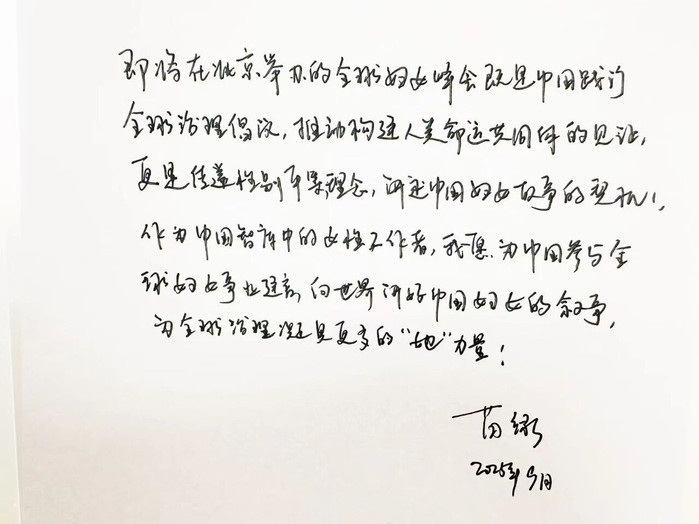 即将在北京举办的全球妇女峰会既是中国践行
全球治理倡议，推动构建人类命运共同体的见证，
更是传递性别平等理念，讲述中国妇女故事的契机！
作为中国智库中的女性工作者，我愿为中国参与全
球妇女事业建言，向世界讲好中国妇女的叙事，
为全球治理贡献更多的“她”力量！
苗绿
2025年9月